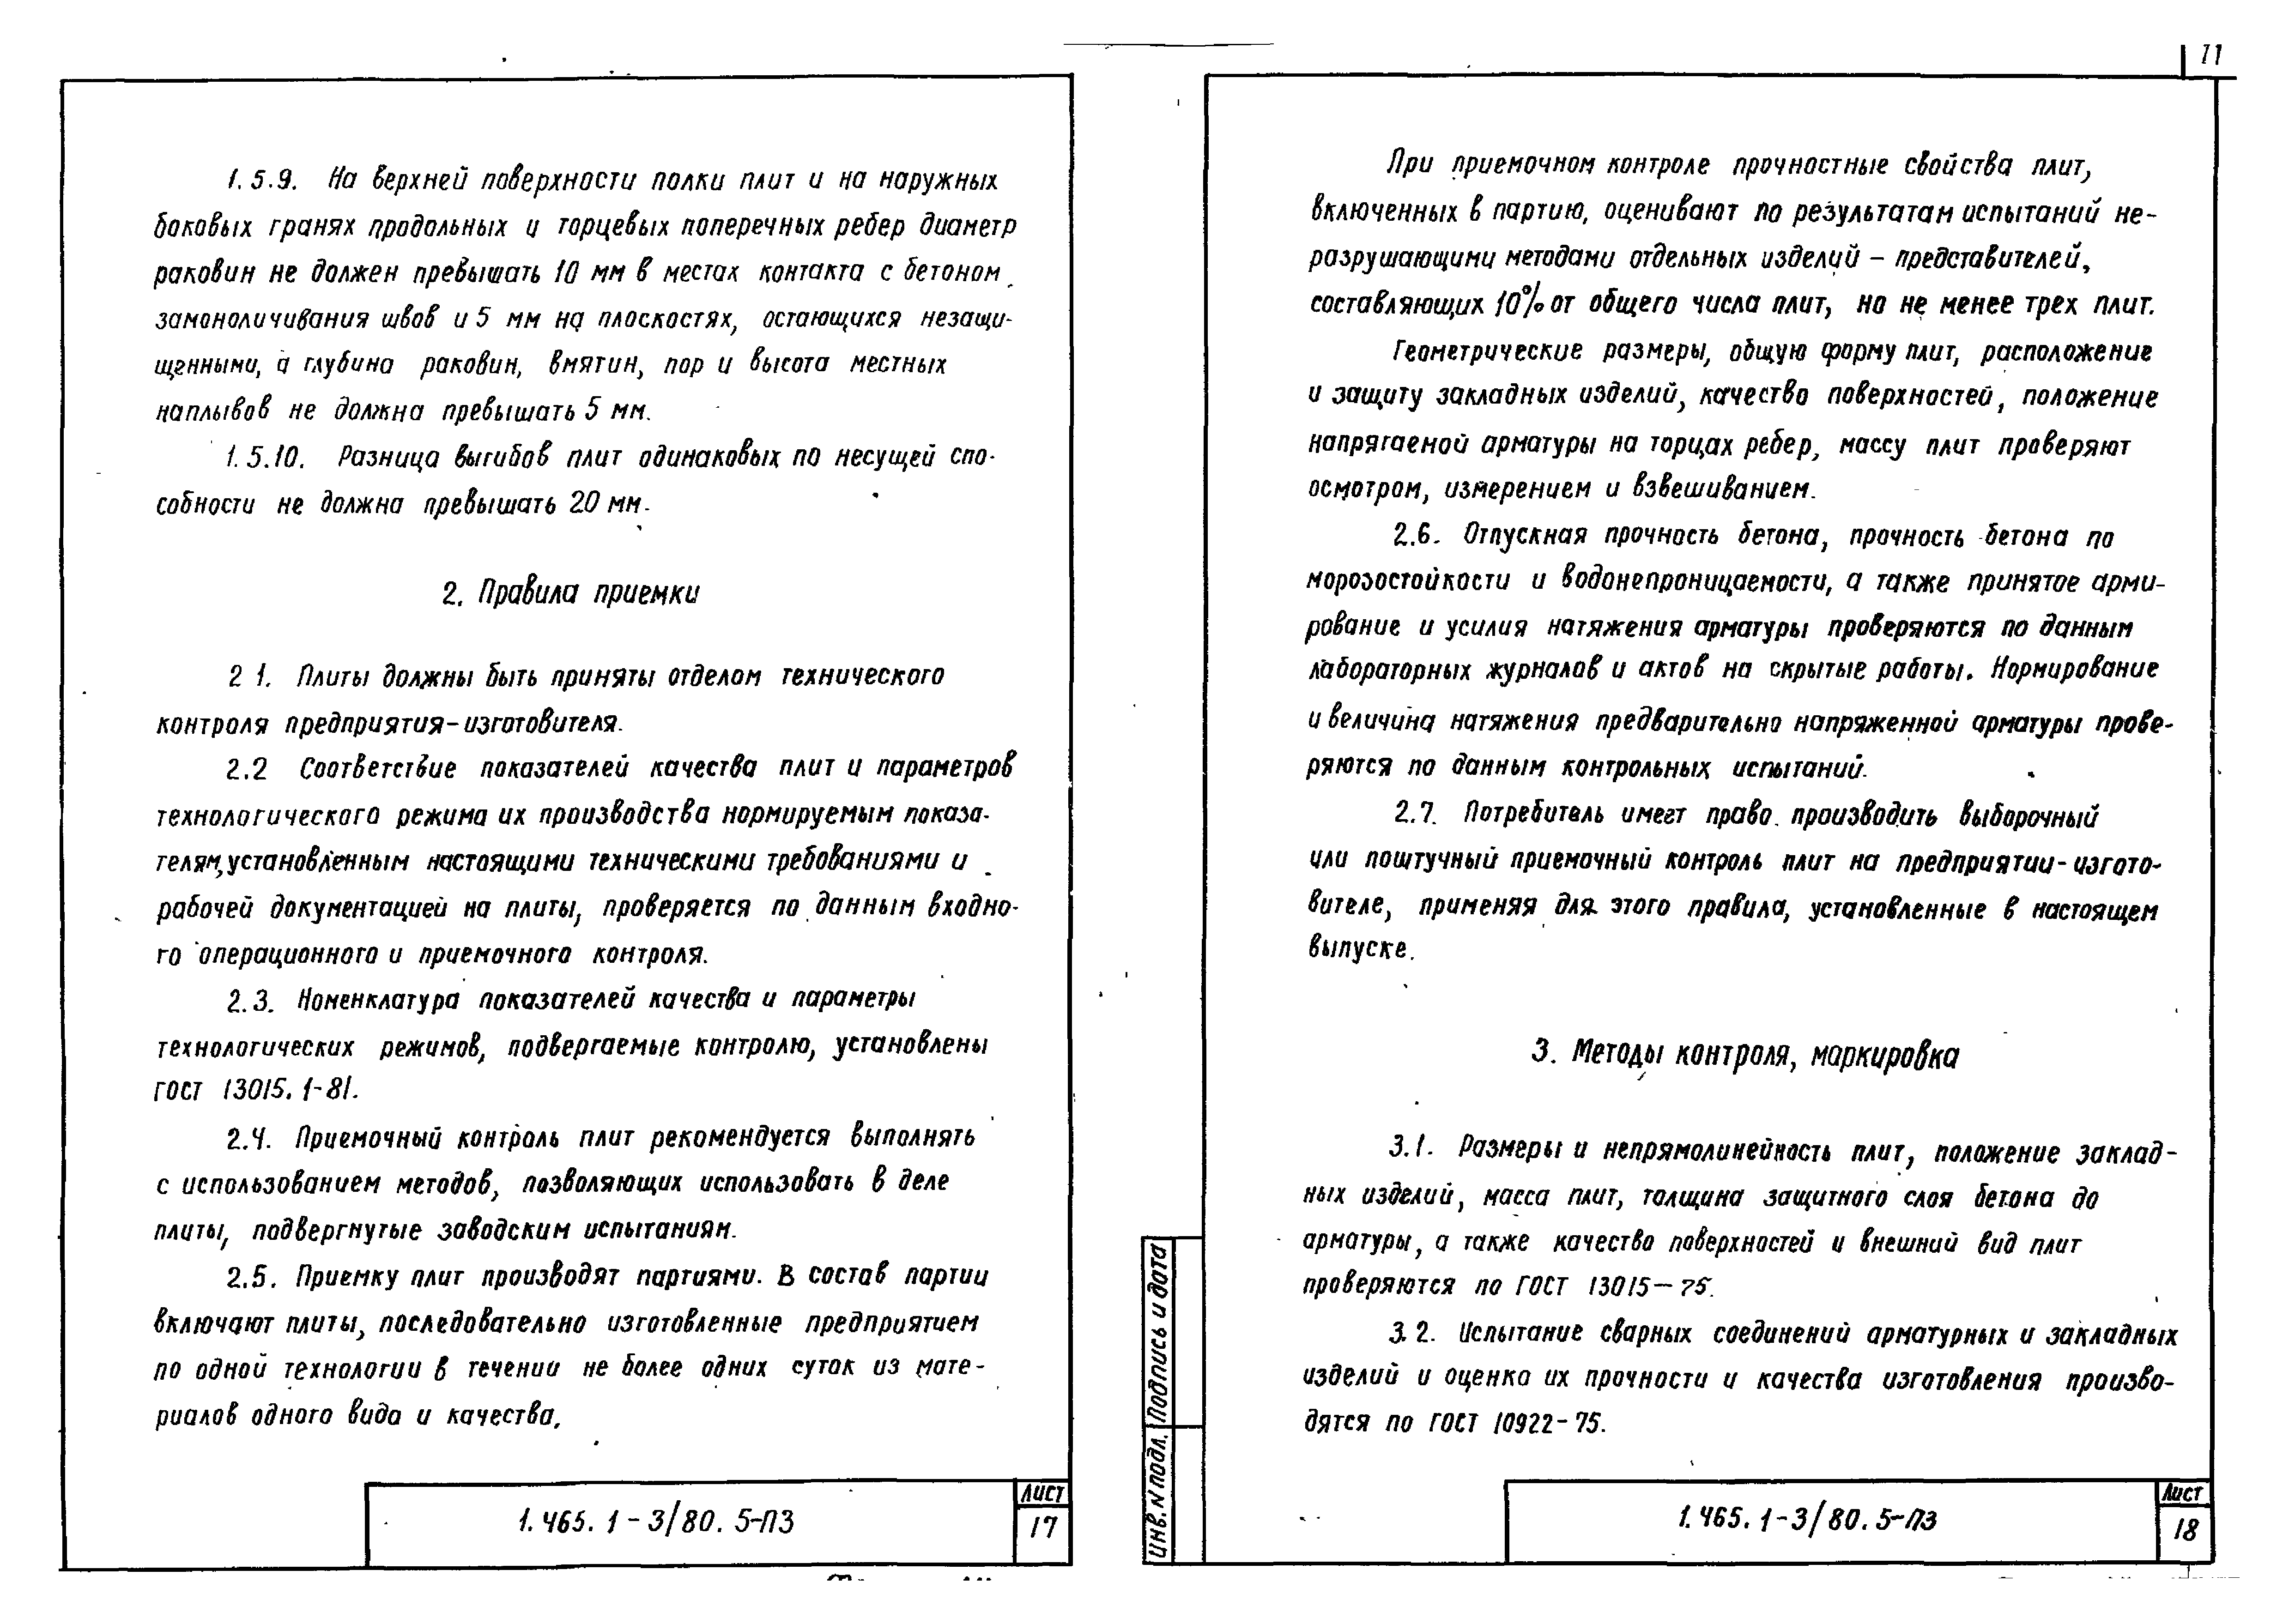 1.5.9. На верхней поверхности полки плит и на наружных
боковых гранях продольных и торцевых поперечных ребер диаметр
раковин не должен превышать 10 мм в местах контакта с бетоном
замоноличивания швов и 5 мм на плоскостях, остающихся незащи-
щенными, а глубина раковин, вмятин, пор и высота местных
наплывов не должна превышать 5 мм.
1.5.10. Разница выгибов плит одинаковых по несущей спо-
собности не должна превышать 20 мм.
2. Правила приемки
2 1. Плиты должны быть приняты отделом технического
контроля предприятия-изготовителя.
2.2 Соответствие показателей качества плит и параметров
технологического режима их производства нормируемым показа-
телям, установленным настоящими техническими требованиями и
рабочей документацией на плиты, проверяется по данным входно-
го операционного и приемочного контроля.
2.3. Номенклатура показателей качества и параметры
технологических режимов, подвергаемые контролю, установлены
ГОСТ 13015.1-81.
2.4. Приемочный контроль плит рекомендуется выполнять
с использованием методов, позволяющих использовать в деле
плиты, подвергнутые заводским испытаниям.
2.5. Приемку плит производят партиями. В состав партии
включают плиты, последовательно изготовленные предприятием
по одной технологии в течении не более одних суток из мате-
риалов одного вида и качества.
1.465.1-3/80.5-ПЗ
Лист
17
11
При приемочном контроле прочностные свойства плит,
включенных в партию, оценивают по результатам испытаний не-
разрушающими методами отдельных изделий - представителей,
составляющих 10% от общего числа плит, но не менее трех плит.
Геометрические размеры, общую форму плит, расположение
и защиту закладных изделий, качество поверхностей, положение
напрягаемой арматуры на торцах ребер, массу плит проверяют
осмотром, измерением и взвешиванием.
2.6. Отпускная прочность бетона, прочность бетона по
морозостойкости и водонепроницаемости, а также принятое арми-
рование и усилия натяжения арматуры проверяются по данным
лабораторных журналов и актов на скрытые работы. Нормирование
и величина натяжения предварительно напряженной арматуры прове-
ряются по данным контрольных испытаний.
2.7. Потребитель имеет право производить выборочный
или поштучный приемочный контроль плит на предприятии-изгото-
вителе, применяя для этого правила, установленные в настоящем
выпуске.
3. Методы контроля, маркировка
3.1. Размеры и непрямолинейность плит, положение заклад-
ных изделий, масса плит, толщина защитного слоя бетона до
арматуры, а также качество поверхностей и внешний вид плит
проверяются по ГОСТ 13015-75.
3.2. Испытание сварных соединений арматурных и закладных
изделий и оценка их прочности и качества изготовления произво-
дятся по ГОСТ 10922-75.
Инв. N подл. Подпись и дата
1.465.1-3/80.5-ПЗ
Лист
18